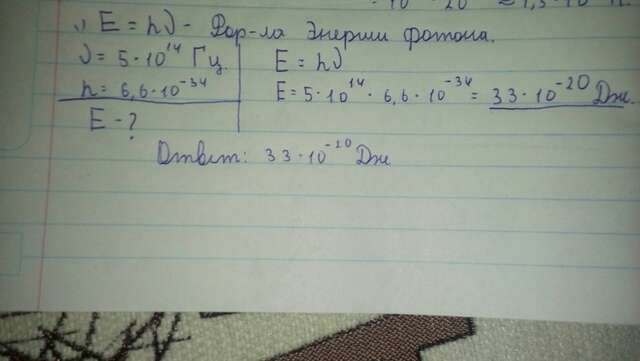 1) E = hν - Фор-ла Энергии фотона.
ν = 5·10¹⁴ Гц. E = hν
h = 6,6·10⁻³⁴ E = 5·10¹⁴ · 6,6·10⁻³⁴ = 33·10⁻²⁰ Дж.
E - ?
Ответ: 33·10⁻²⁰ Дж